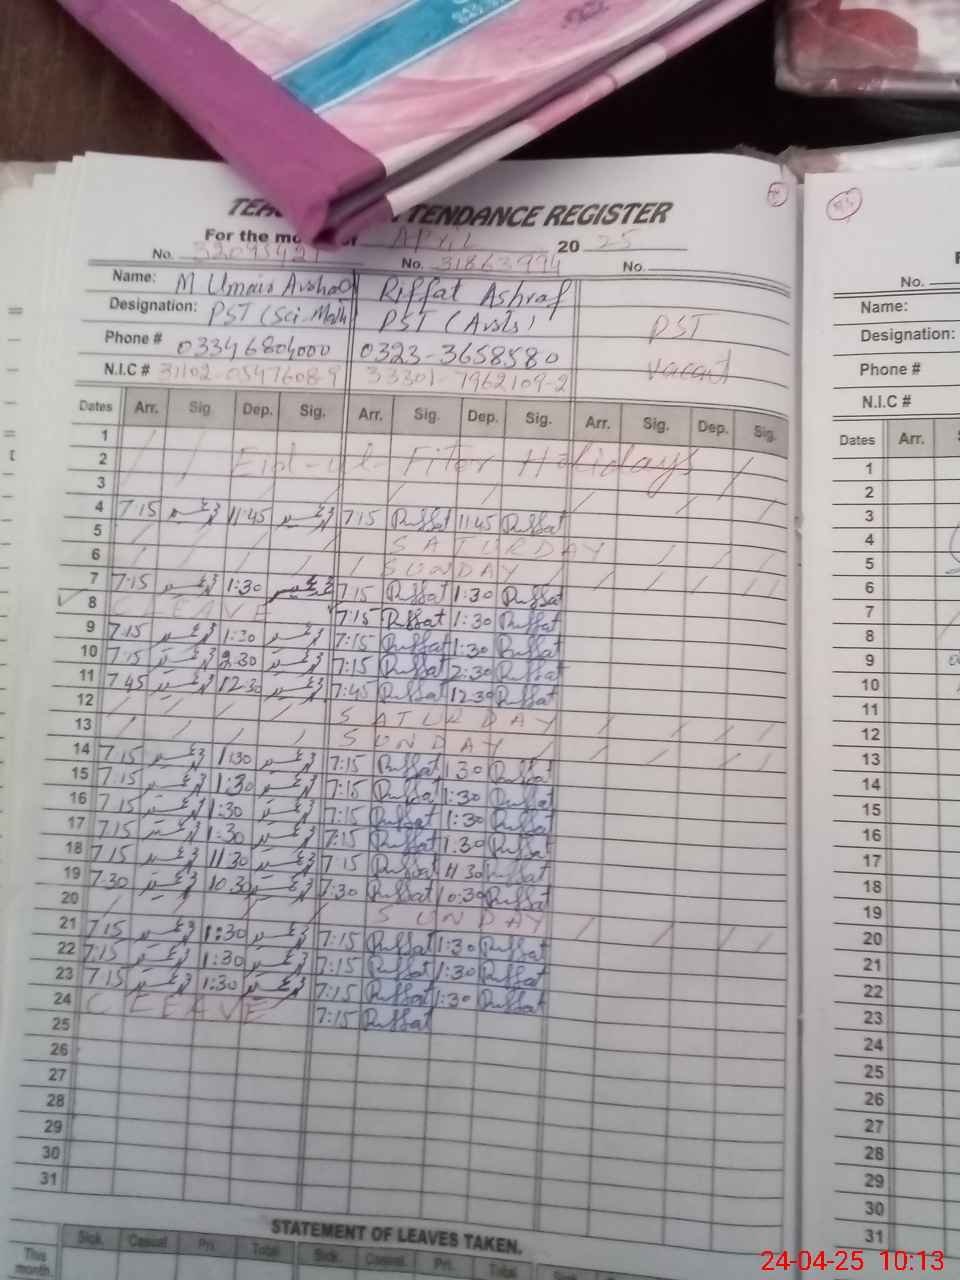 TEA TENDANCE REGISTER
For the mo of APRIL 20 25
No. 32095421 No. 31863994 No.
Name: M Umair Arshad Riffat Ashraf
Designation: PST (Sci-Math) PST (Arts) PST
Phone # 03346804000 0323-3658580 vacant
N.I.C # 31102-0547608-9 33301-7962109-2
Dates Arr. Sig. Dep. Sig. Arr. Sig. Dep. Sig. Arr. Sig. Dep. Sig.
1
2 Eid-ul-Fiter Holidays
3
4 7:15 11:45 7:15 Riffat 11:45 Riffat
5 SATURDAY
6 SUNDAY
7 7:15 1:30 7:15 Riffat 1:30 Riffat
8 C LEAVE 7:15 Riffat 1:30 Riffat
9 7:15 1:30 7:15 Riffat 1:30 Riffat
10 7:15 2:30 7:15 Riffat 2:30 Riffat
11 7:45 12:30 7:45 Riffat 12:30 Riffat
12 SATURDAY
13 SUNDAY
14 7:15 1:30 7:15 Riffat 1:30 Riffat
15 7:15 1:30 7:15 Riffat 1:30 Riffat
16 7:15 1:30 7:15 Riffat 1:30 Riffat
17 7:15 1:30 7:15 Riffat 1:30 Riffat
18 7:15 11:30 7:15 Riffat 11:30 Riffat
19 7:30 10:30 7:30 Riffat 10:30 Riffat
20 SUNDAY
21 7:15 1:30 7:15 Riffat 1:30 Riffat
22 7:15 1:30 7:15 Riffat 1:30 Riffat
23 7:15 1:30 7:15 Riffat 1:30 Riffat
24 C LEAVE 7:15 Riffat
25
26
27
28
29
30
31
STATEMENT OF LEAVES TAKEN.
Sick Casual Pri. Total Sick. Casual. Pri. Total
This month.
No.
Name:
Designation:
Phone #
N.I.C #
Dates Arr.
1
2
3
4
5
6
7
8
9
10
11
12
13
14
15
16
17
18
19
20
21
22
23
24
25
26
27
28
29
30
31
24-04-25 10:13